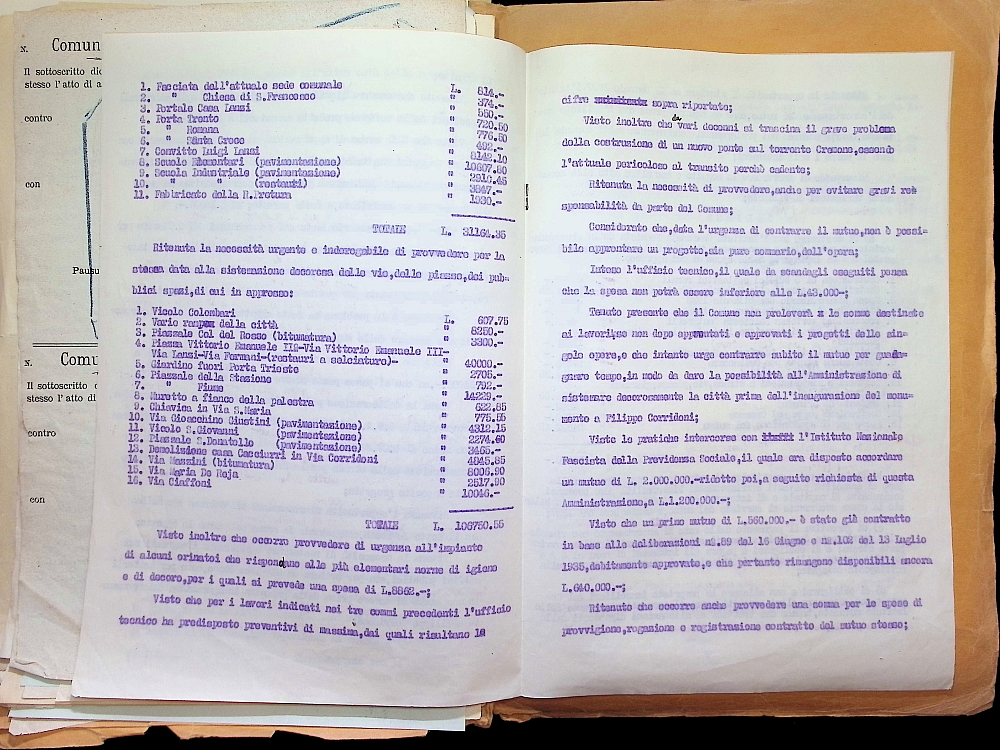 N. Comun
Il sottoscritto dic
stesso l'atto di a
contro
con
Pausu
N. Comu
Il sottoscritto
stesso l'atto di
contro
con
1. Facciata dell'attuale sede comunale L. 814.-
2. " Chiesa di S.Francesco " 374.-
3. Portale Casa Lanzi " 550.-
4. Porta Trento " 720.50
5. " Romana " 776.50
6. " Santa Croce " 492.-
7. Convitto Luigi Lanzi " 8142.10
8. Scuole Elementari (pavimentazione) " 10607.80
9. Scuola Industriale (pavimentazione) " 2916.45
10. " " (restauri) " 3847.-
11. Fabbricato della R.Pretura " 1930.-
TOTALE L. 31164.35
Ritenuta la necessità urgente e inderogabile di provvedere per la
stessa data alla sistemazione decorosa delle vie,delle piazze,dei pub-
blici spazi,di cui in appresso:
1. Vicolo Colombari L. 607.75
2. Varie rampe della città " 8250.-
3. Piazzale Col del Rosso (bitumatura) " 3300.-
4. Piazza Vittorio Emanuele III-Via Vittorio Emanuele III-
Via Lanzi-Via Formani-(restauri a selciature) " 40000.-
5. Giardino fuori Porta Trieste " 2705.-
6. Piazzale della Stazione " 792.-
7. " Fiume " 14229.-
8. Muretto a fianco della palestra " 622.85
9. Chiavica in Via S.Maria " 775.55
10. Via Gioacchino Giustini (pavimentazione) " 4312.15
11. Vicolo S.Giovanni (pavimentazione) " 2274.60
12. Piazzale S.Donatello (pavimentazione) " 3465.-
13. Demolizione casa Casciurri in Via Corridoni " 4845.85
14. Via Mazzini (bitumatura) " 8006.90
15. Via Maria De Neja " 2517.90
16. Via Ciaffoni " 10046.-
TOTALE L. 106750.55
Visto inoltre che occorre provvedere di urgenza all'impianto
di alcuni orinatoi che rispondano alle più elementari norme di igiene
e di decoro,per i quali si prevede una spesa di L.8862.-;
Visto che per i lavori indicati nei tre commi precedenti l'ufficio
tecnico ha predisposto preventivi di massima,dai quali risultano le
cifre sopra riportate;
Visto inoltre che da vari decenni si trascina il grave problema
della costruzione di un nuovo ponte sul torrente Cremone,essendo
l'attuale pericoloso al transito perchè cadente;
Ritenuta la necessità di provvedere,anche per evitare gravi re=
sponsabilità da parte del Comune;
Considerato che,data l'urgenza di contrarre il mutuo,non è possi-
bile approntare un progetto,sia pure sommario,dell'opera;
Inteso l'ufficio tecnico,il quale da scandagli eseguiti pensa
che la spesa non potrà essere inferiore alle L.43.000-;
Tenuto presente che il Comune non preleverà x le somme destinate
ai lavori,se non dopo appuntati e approvati i progetti delle sin-
gole opere,e che intanto urge contrarre subito il mutuo per guada-
gnare tempo,in modo da dare la possibilità all'Amministrazione di
sistemare decorosamente la città prima dell'inaugurazione del monu-
mento a Filippo Corridoni;
Viste le pratiche intercorse con l'Istituto Nazionale
Fascista della Previdenza Sociale,il quale era disposto accordare
un mutuo di L. 2.000.000.-ridotto poi,a seguito richiesta di questa
Amministrazione,a L.1.200.000.-;
Visto che un primo mutuo di L.560.000.- è stato già contratto
in base alle deliberazioni nº.89 del 16 Giugno e nº.102 del 13 Luglio
1935,debitamente approvate,e che pertanto rimangono disponibili ancora
L.640.000.-;
Ritenuto che occorre anche provvedere una somma per le spese di
provvigione,rogazione e registrazione contratto del mutuo stesso;